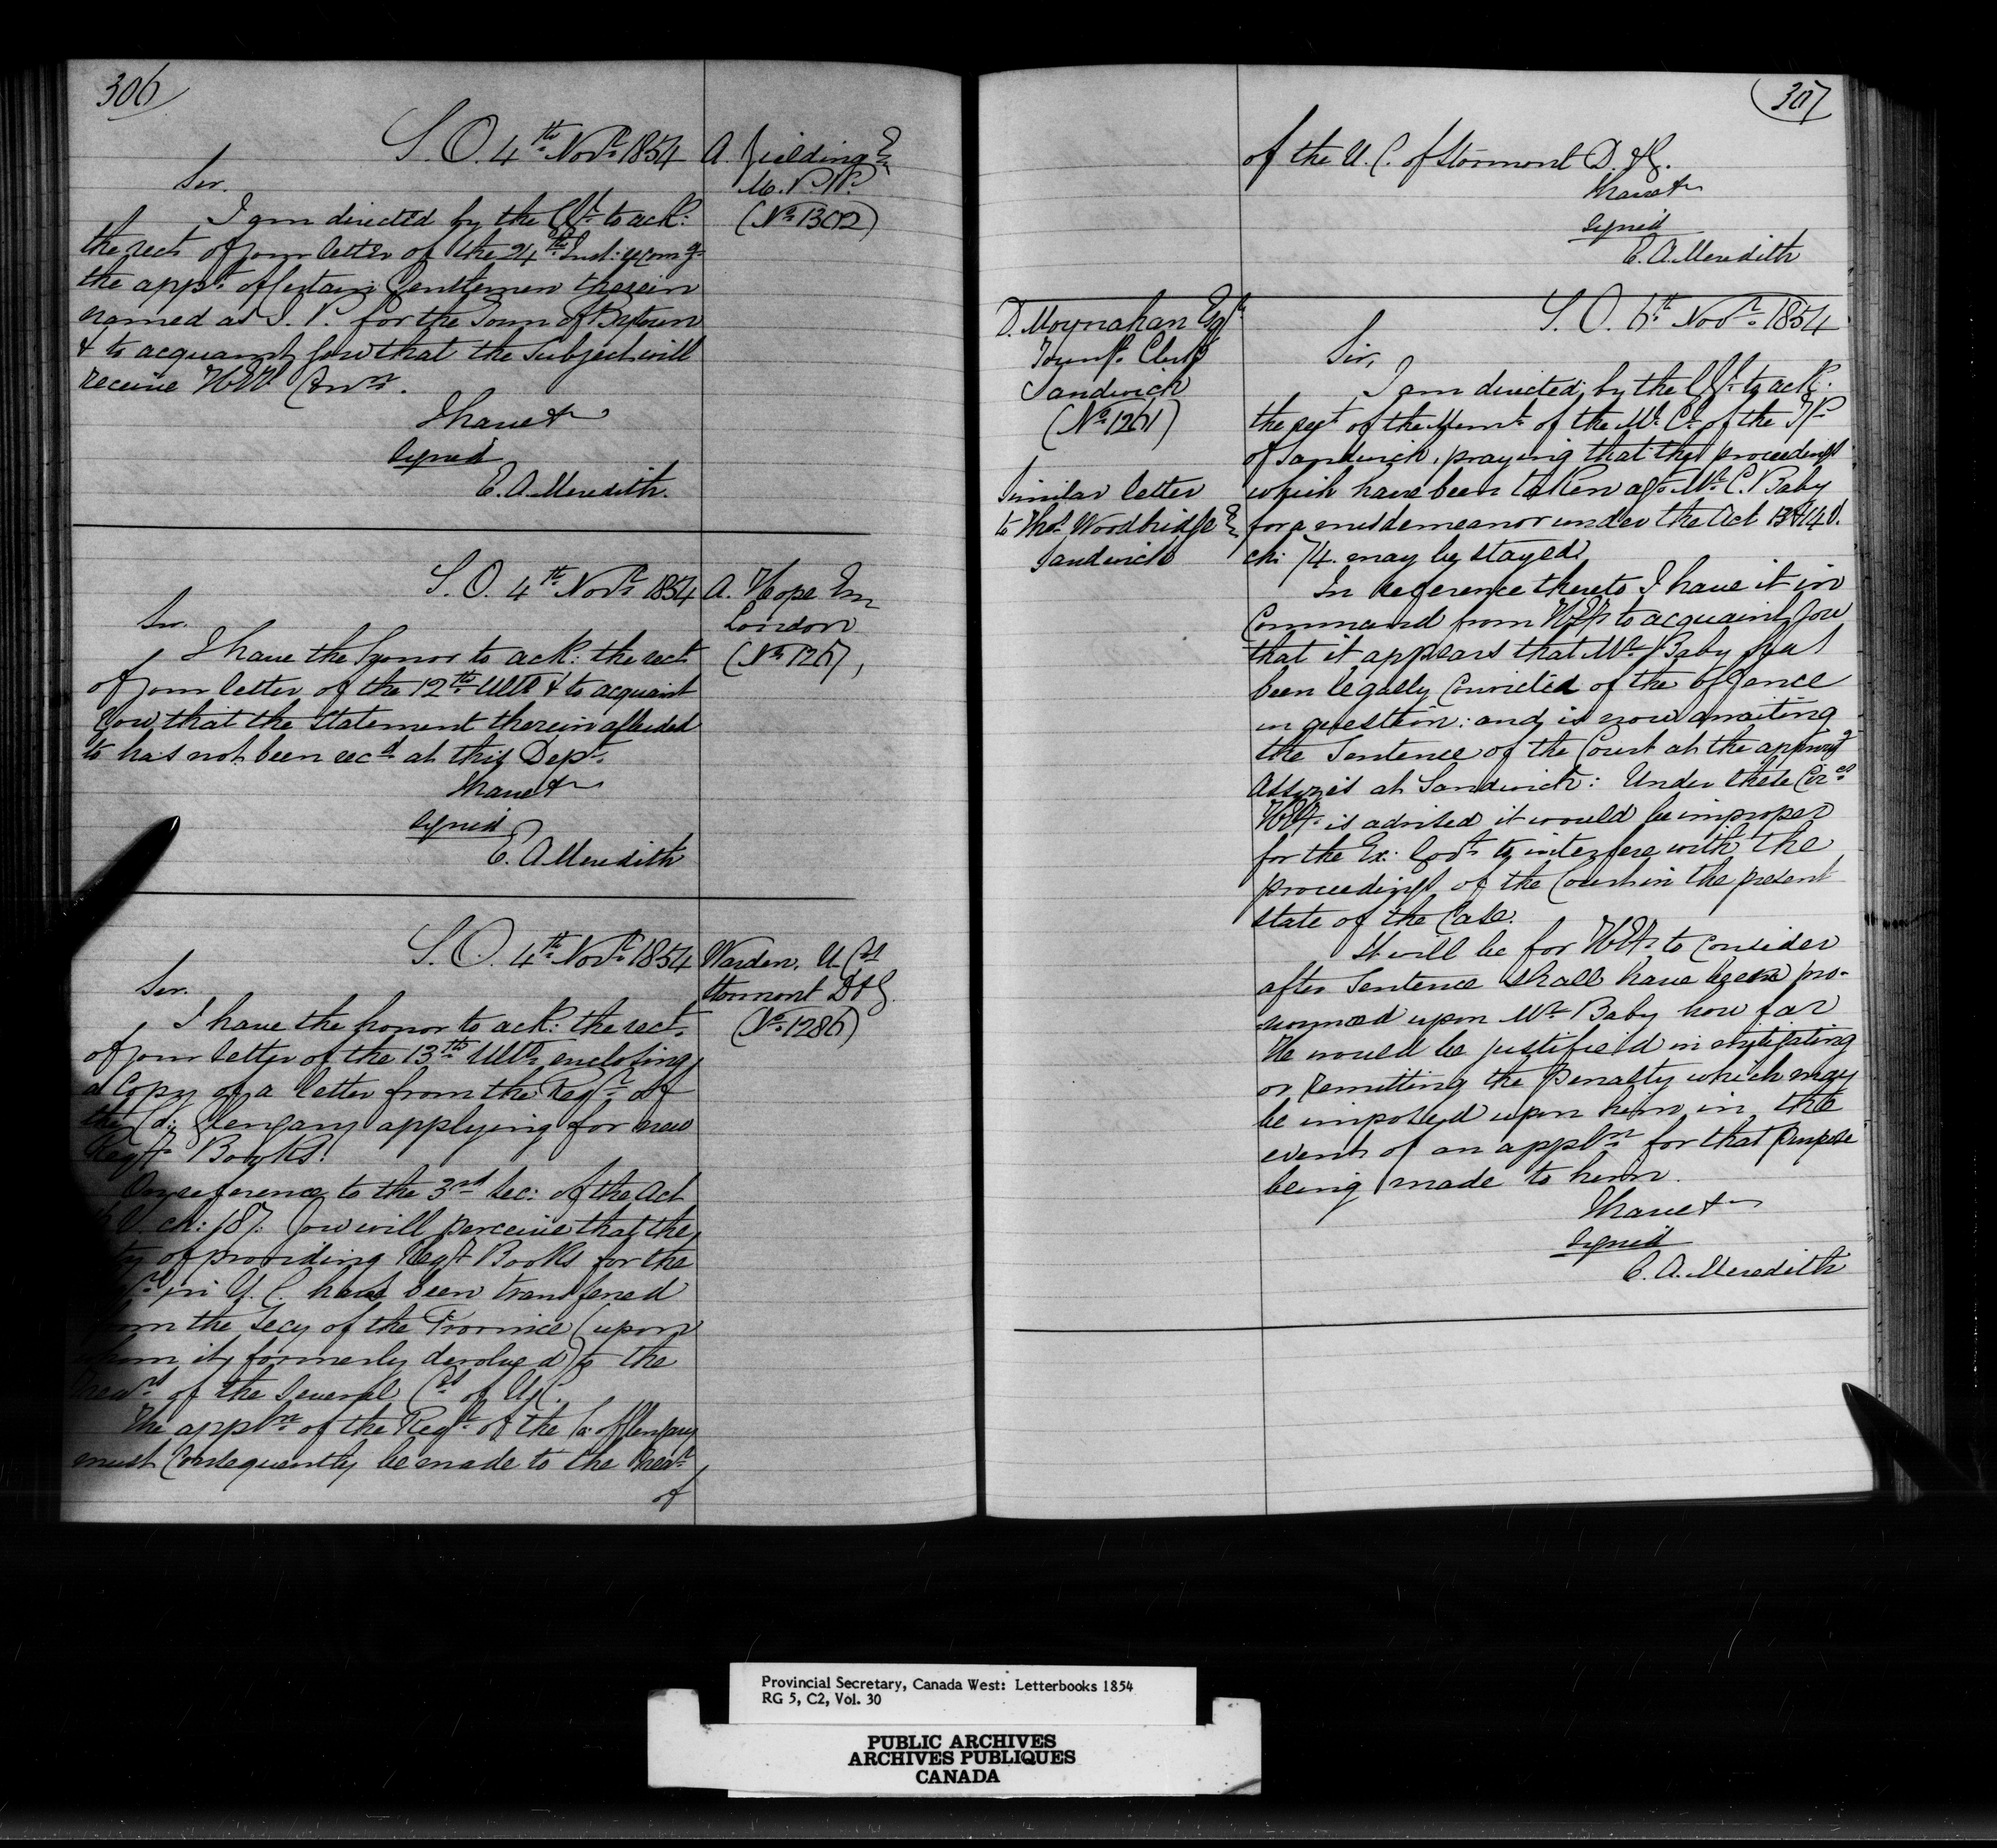 306
S. O. 4th Novr 1854
A. Fielding Esqr
M. P. P.
(No 1302)
Sir.
I am directed by the G. G. to ack:
the rect of your letter of the 24th Inst: recomg
the appt of certain Gentlemen therein
named as J. P. for the Town of Bytown
& to acquaint you that the Subject will
receive HE's Conn.
I have &
Signed
E. A. Meredith.
S. O. 4th Novr 1854
A. Hope Esqr
London
(No 1267)
Sir.
I have the honor to ack: the rect
of your letter of the 12th Ulto & to acquaint
you that the Statement therein alluded
to has not been recd at this Dept.
I have &
Signed
E. A. Meredith
S. O. 4th Novr 1854
Warden, U. Cos
Stormont D & G.
(No 1286)
Sir.
I have the honor to ack: the rect.
of your letter of the 13th Ulto enclosing
a Copy of a letter from the Regr of
the Co: Glengary applying for new
Regr Books.
On reference to the 3rd Sec: of the Act
V. ch: 187. You will perceive that the
of providing Regr Books for the
in U. C. has been transfered
from the Secy of the Province (upon
whom it formerly devolved) to the
Trears of the several Cos of U. C.
The appln of the Regr of the Co: of Glengary
must Consequently be made to the Trear
of
307
of the U. C. of Stormont D. & G.
I have &
Signed
E. A. Meredith
D. Moynahan Esqr
Townp. Clerk
Sandwich
(No 1261)
Similar letter
to Thos Woodbridge Esqr
Sandwich
S. O. 6th Novr 1854
Sir,
I am directed by the G. G. to ack:
the rect of the Meml of the Ml Cl of the TP
of Sandwich, praying that the proceedings
which have been taken agt Mr C. Baby
for a misdemeanor under the Act 13 & 14 V.
ch: 74. may be stayed.
In reference thereto I have it in
Command from HE to acquaint you
that it appears that Mr Baby has
been legally Convicted of the offence
in question: and is now awaiting
the Sentence of the Court at the approachg
Assizes at Sandwich: Under these Circes
HE is advised it would be improper
for the Ex: Govt to interfere with the
proceedings of the Court in the present
state of the Case.
It will be for HE to Consider
after Sentence shall have been pro-
nounced upon Mr Baby how far
He would be justified in mitigating
or remitting the penalty which may
be imposed upon him in the
event of an appln for that purpose
being made to him.
I have &
Signed
E. A. Meredith
Provincial Secretary, Canada West: Letterbooks 1854
RG 5, C2, Vol. 30
PUBLIC ARCHIVES
ARCHIVES PUBLIQUES
CANADA